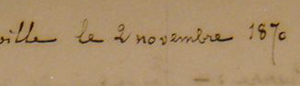 ville le 2 novembre 1870